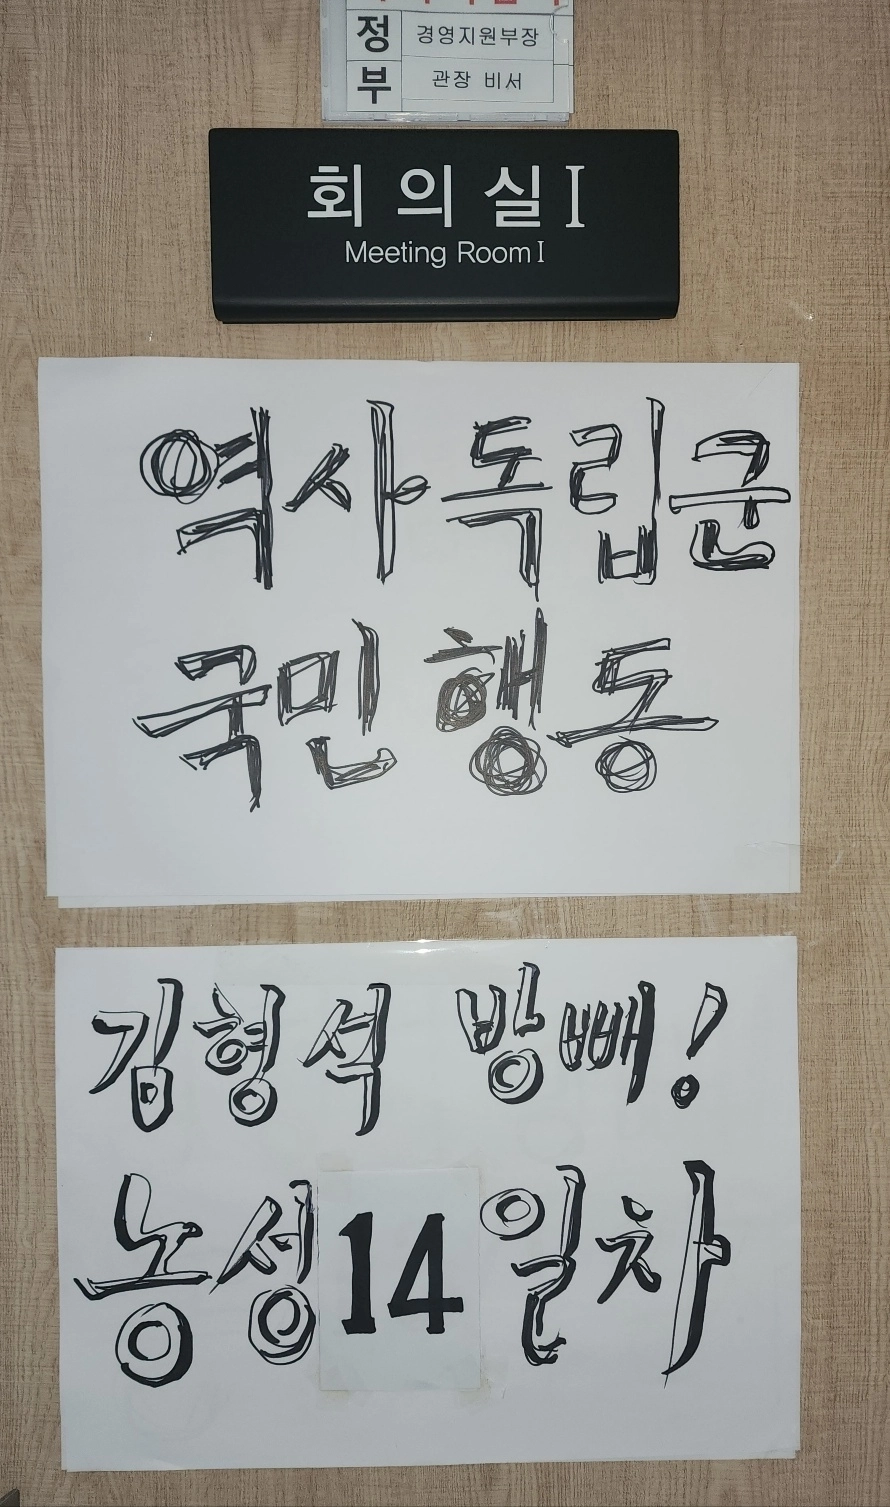 정 경영지원부장
부 관장 비서
회의실Ⅰ
Meeting Room Ⅰ
역사독립군
국민행동
김형석 방빼!
농성 14일차